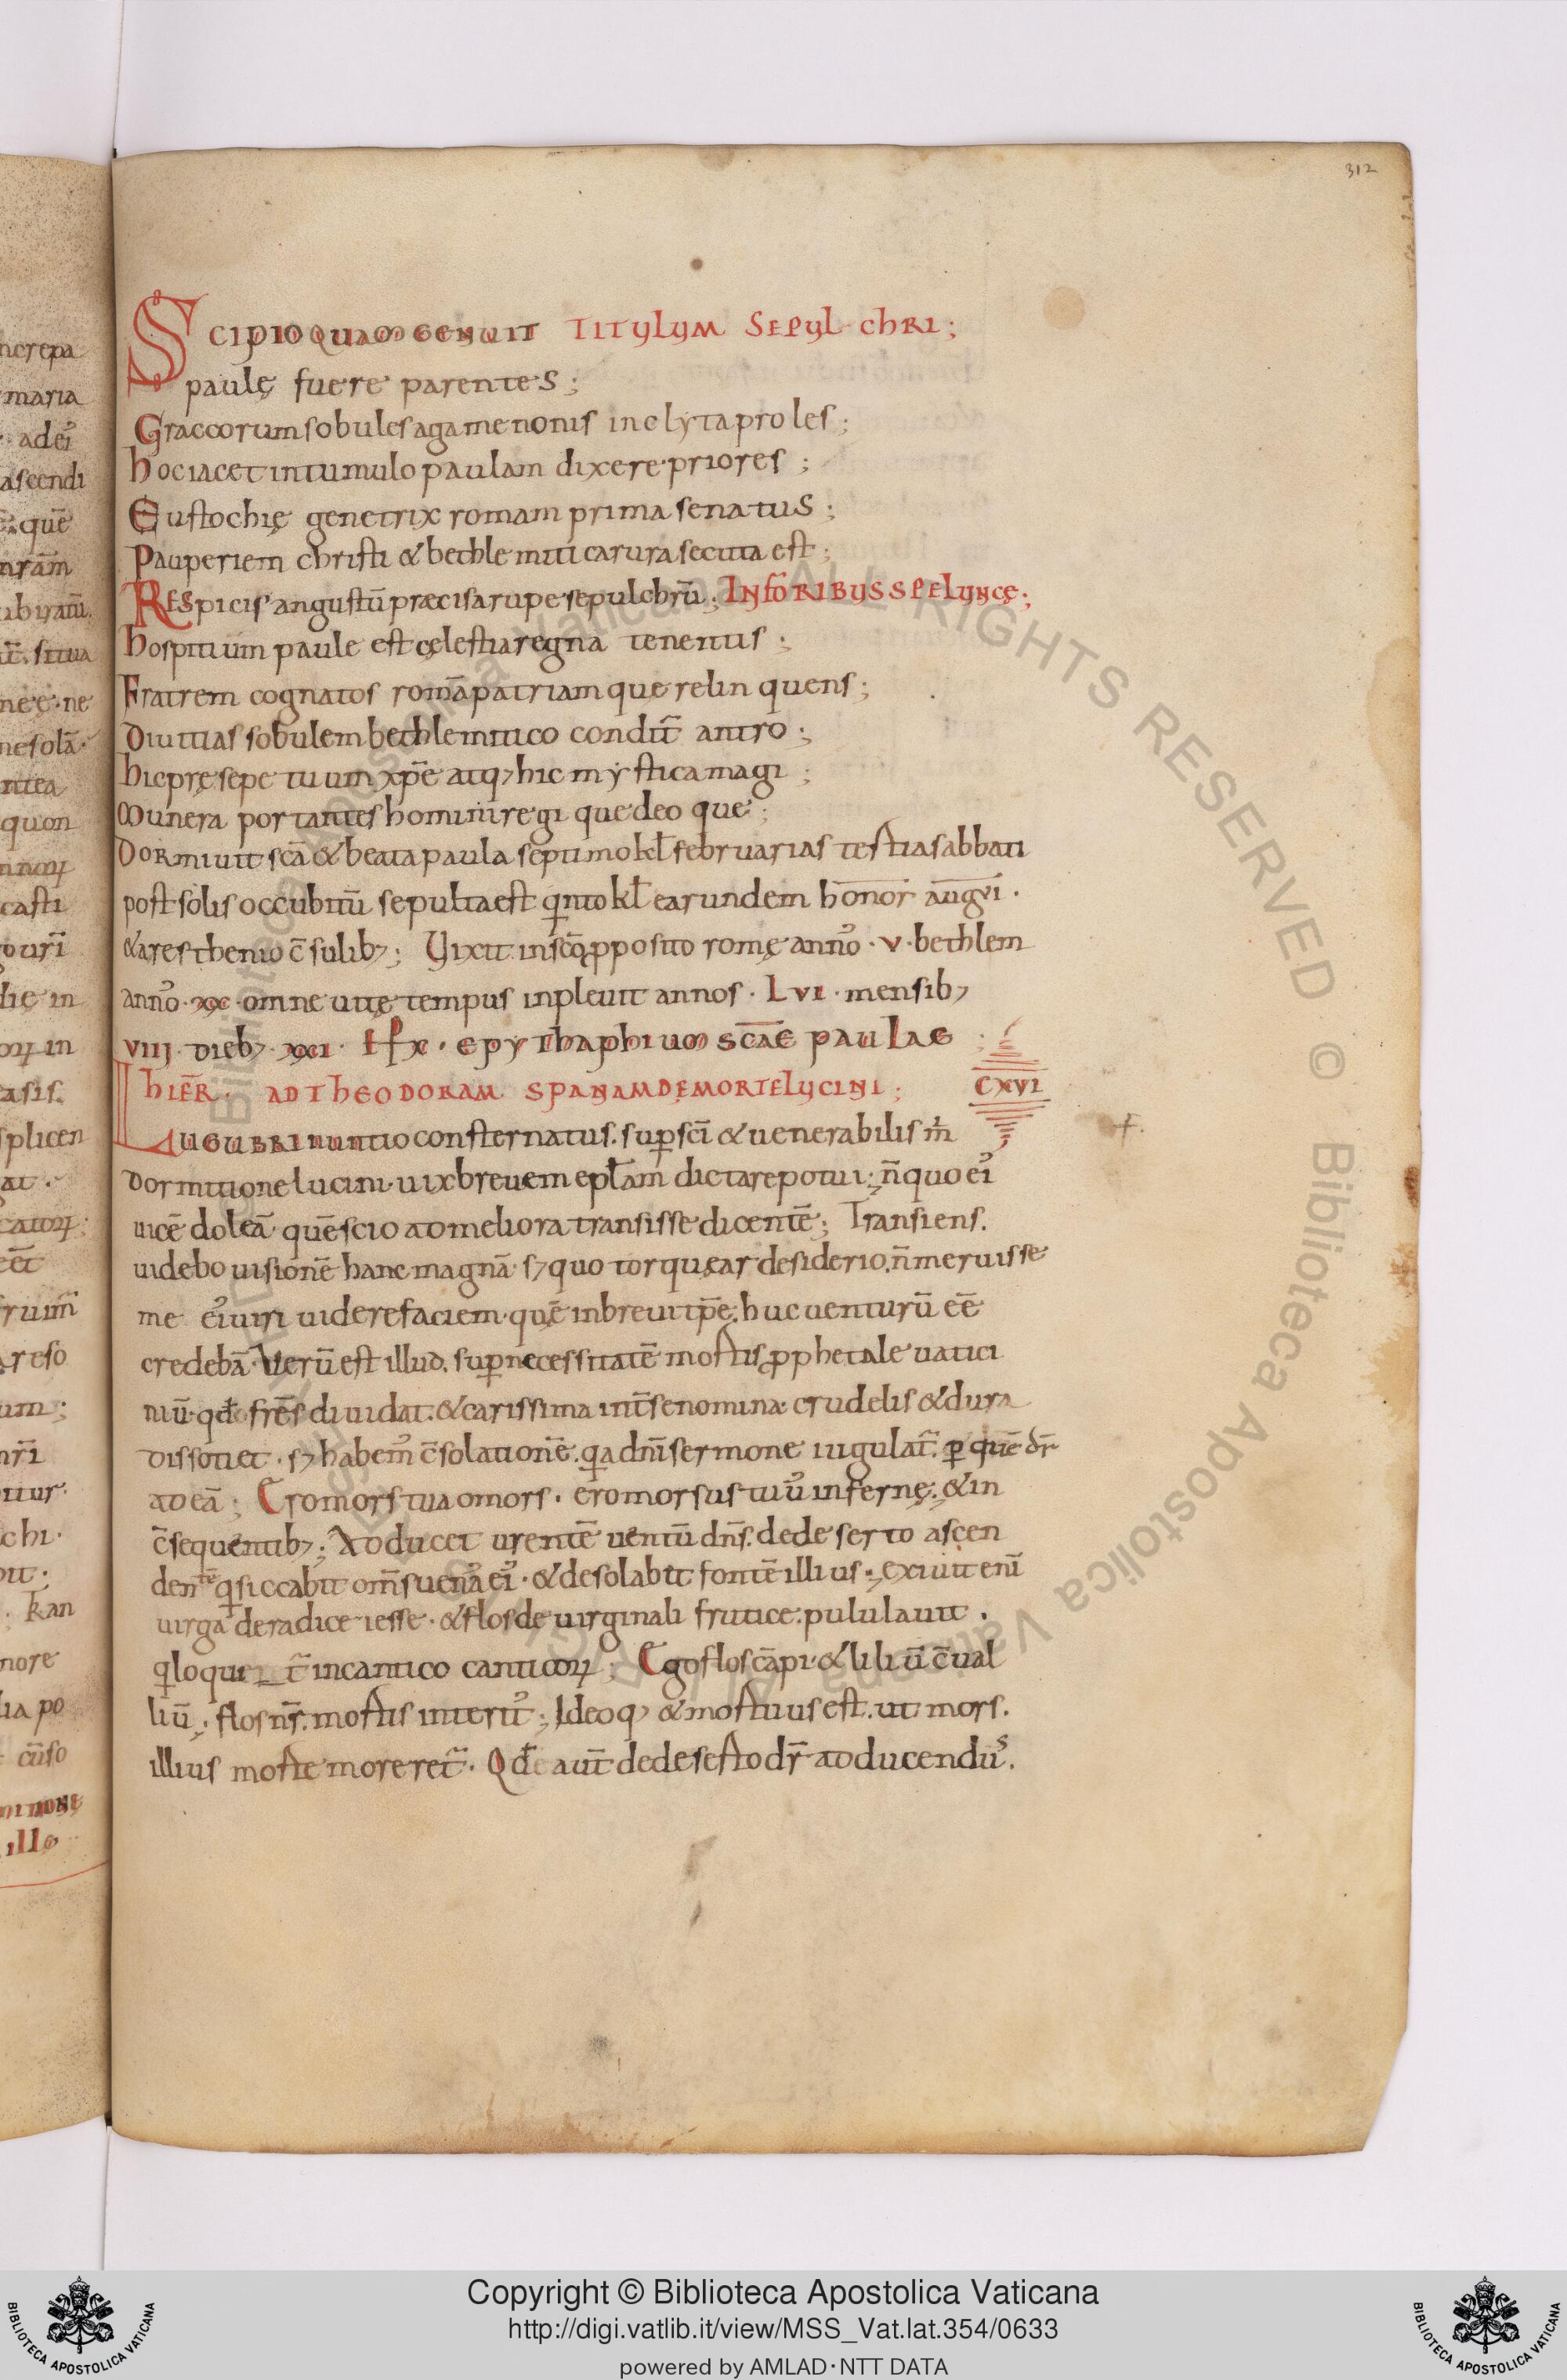 312
SCIPIO QUAM GENUIT TITULUM SEPUL CHRI;
paulę fuere parentes;
Graccorum sobules agamenonis inclyta proles;
hoc iacet in tumulo paulam dixere priores;
Eustochię genetrix romam prima senatus;
Pauperiem christi & bethlemiti carura secuta est;
RESpicis angustū præcisa rupe sepulchrū; IN FORIBUS SPELUNCĘ;
hospitium paule est cęlestia regna tenentus;
Fratrem cognatos romā patriam que relin quens;
Diuitias sobulem bethlemitico condit̄ antro;
hic pręsepe tuum xp̄e atq; hic mystica magi;
Munera portantes homini regi que deo que;
DORmiuit scā & beata paula septimo kł februarias testia sabbati
post solis occubitū sepulta est qinto kł earundem honor augvi.
& aresthenio c̄sulib; Vixit in scō ꝓposito romę anno᾿ · v · bethlem
anno᾿ · xx · omne uitę tempus inpleuit annos · Lvi · mensib;
VIIIJ dieb; xxi · EFX · EPYTHAPHIUM SCĀE PAULAE;
HIER̄. AD THEODORAM SPANAM DE MORTE LUCINI; CXVI
LUGUBRI NUNTIO consternatus. sup̱ sc̄i & uenerabilis m̄
dormitione lucini. uix breuem epłam dictare potui; n̄ quo ei᾿
uicē doleā quē scio ad meliora transisse dicentē; Transiens.
uidebo uisionē hanc magnā. s; quo torquear desiderio. n̄ meruisse
me ei᾿ uiri uidere faciem. quē in breui tp̄e. huc uenturū eē
credebā. Verū est illud. sup̱ necessitatē mortis ꝓphetale uatici
niū. qđ fr̄es diuidat. & carissima int̄ se nomina crudelis & dura
dissotiet. s; habem᾿ c̄solationē. qa dn̄i sermone iugulat̄. p̱ quē dr̄
ad eā; Ero mors tua o mors. ero morsus tuu᾿ infernę; & in
c̄sequentib; Adducet urentē uentū dn̄s. de deserto ascen
dentē q siccabit om̄s uena᾿ ei᾿. & desolabit fontē illius. exiuit enī
uirga de radice iesse. & flos de uirginali frutice. pululauit.
q loquit̄ in cantico canticoꝝ; Ego flos cāpi & liliū c̄ual
liū; flos nr̄. mortis interit᾿; Ideoq; & mortuus est. ut mors.
illius morte moreret̄. Qđ aut̄ de deserto dr̄ adducendu᾿s.
Copyright © Biblioteca Apostolica Vaticana
http://digi.vatlib.it/view/MSS_Vat.lat.354/0633
powered by AMLAD·NTT DATA